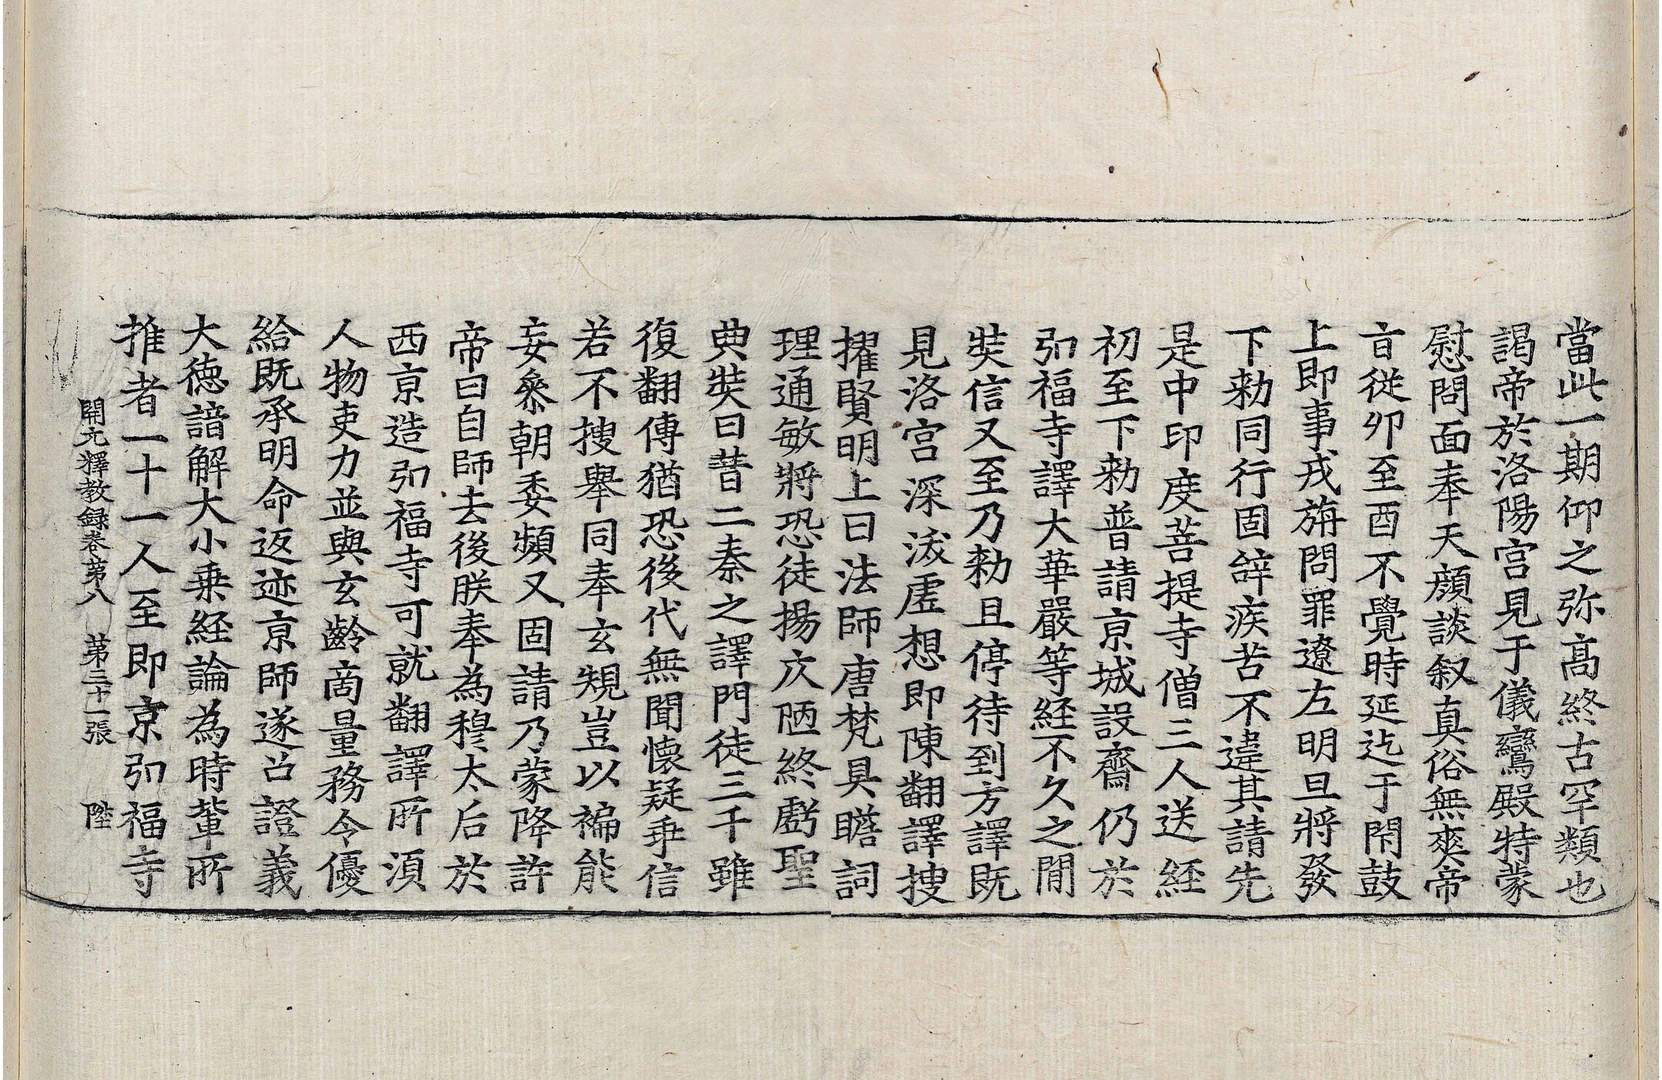 當此一期仰之弥高終古罕類也
謁帝於洛陽宫見于儀鸞殿特蒙
慰問面奉天顔談叙真俗無爽帝
旨從夘至酉不覺時延迄于閇鼓
上即事戎旃問罪遼左明旦將發
下勑同行固辝疾苦不違其請先
是中印度菩提寺僧三人送經
初至下勑普請京城設齋仍於
弘福寺譯大華嚴等經不久之間
奘信又至乃勑且停待到方譯既
見洛宫深沃虚想即陳翻譯搜
擢賢明上曰法師唐梵具贍詞
理通敏將恐徒揚仄陋終虧聖
典奘曰昔二秦之譯門徒三千雖
復翻傳猶恐後代無聞懷疑乖信
若不搜舉同奉玄規豈以褊能
妄叅朝委頻又固請乃蒙降許
帝曰自師去後朕奉為穆太后於
西京造弘福寺可就翻譯所湏
人物吏力並與玄齡商量務令優
給既承明命返迹京師遂召證義
大徳諳解大小乗經論為時輩所
推者一十一人至即京弘福寺
開元釋教録卷第八　第二十一張　陛